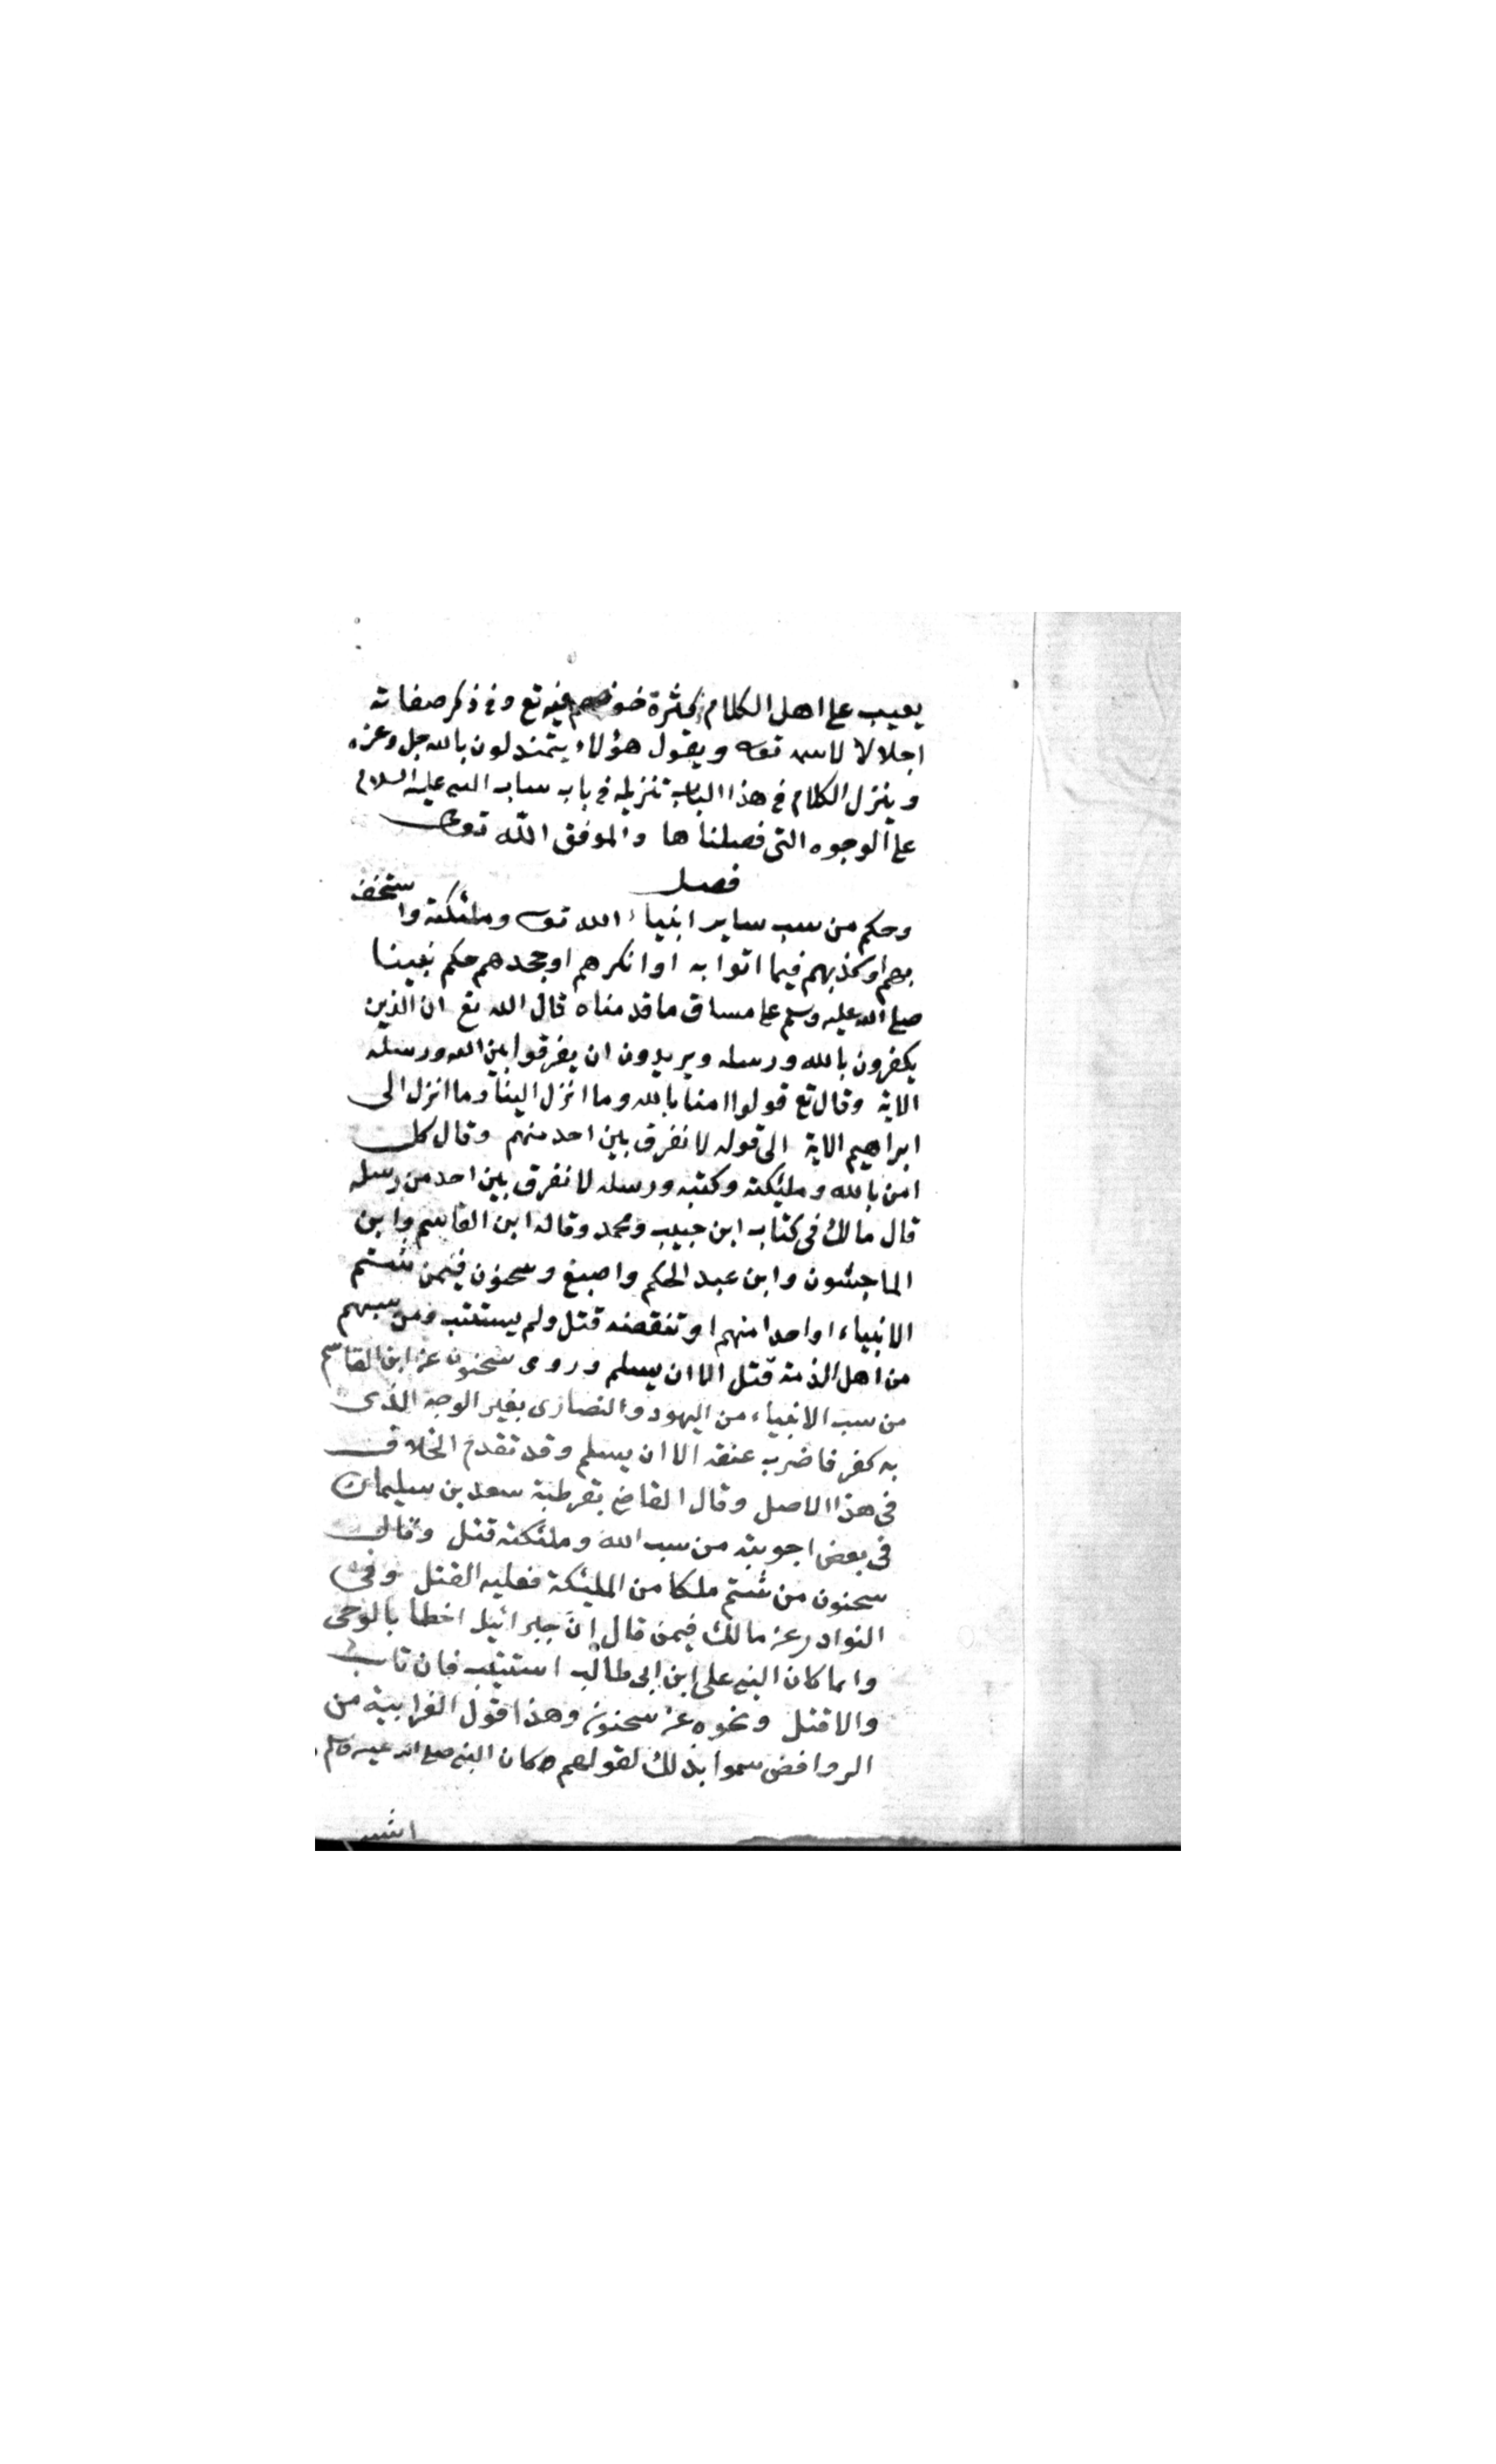 يعيب على اهل الكلام كثرة خوضهم فيه تع وفى ذكر صفاته
اجلالا لاسمه تعه ويقول هؤلاء يتمندلون بالله جل وعز
وينزل الكلام فى هذا الباب تنزيله فى باب ساب النبى عليه السلام
على الوجوه التى فصلناها والموفق الله تعالى
فصل
وحكم من سب ساير انبياء الله تعه وملئكته واستخف
بهم او كذبهم فيما اتوا به او انكرهم او جحدهم حكم نبينا
صلى الله عليه وسلم على مساق ما قدمناه قال الله تع ان الذين
يكفرون بالله ورسله ويريدون ان يفرقوا بين الله ورسله
الاية وقال تع قولوا امنا بالله وما انزل الينا وما انزل الى
ابراهيم الاية الى قوله لا نفرق بين احد منهم وقال كل
امن بالله وملئكته وكتبه ورسله لا نفرق بين احد من رسله
قال مالك فى كتاب ابن حبيب ومحمد وقاله ابن القاسم وابن
الماجشون وابن عبد الحكم واصبغ وسحنون فيمن شتم
الانبياء او احدا منهم او تنقصه قتل ولم يستتب ومن سبهم
من اهل الذمة قتل الا ان يسلم وروى سحنون عن ابن القاسم
من سب الانبياء من اليهود والنصارى بغير الوجه الذى
به كفر فاضرب عنقه الا ان يسلم وقد تقدم الخلاف
فى هذا الاصل وقال القاضى بقرطبة سعد بن سليمان
فى بعض اجوبته من سب الله وملئكته قتل وقال
سحنون من شتم ملكا من الملئكة فعليه القتل وفى
النوادر عن مالك فيمن قال ان جبرائيل اخطأ بالوحى
وانما كان النبى على ابن ابى طالب استتيب فان تاب
والا قتل ونحوه عن سحنون وهذا قول الغرابية من
الروافض سموا بذلك لقولهم كان النبى صلى الله عليه وسلم
اشبه